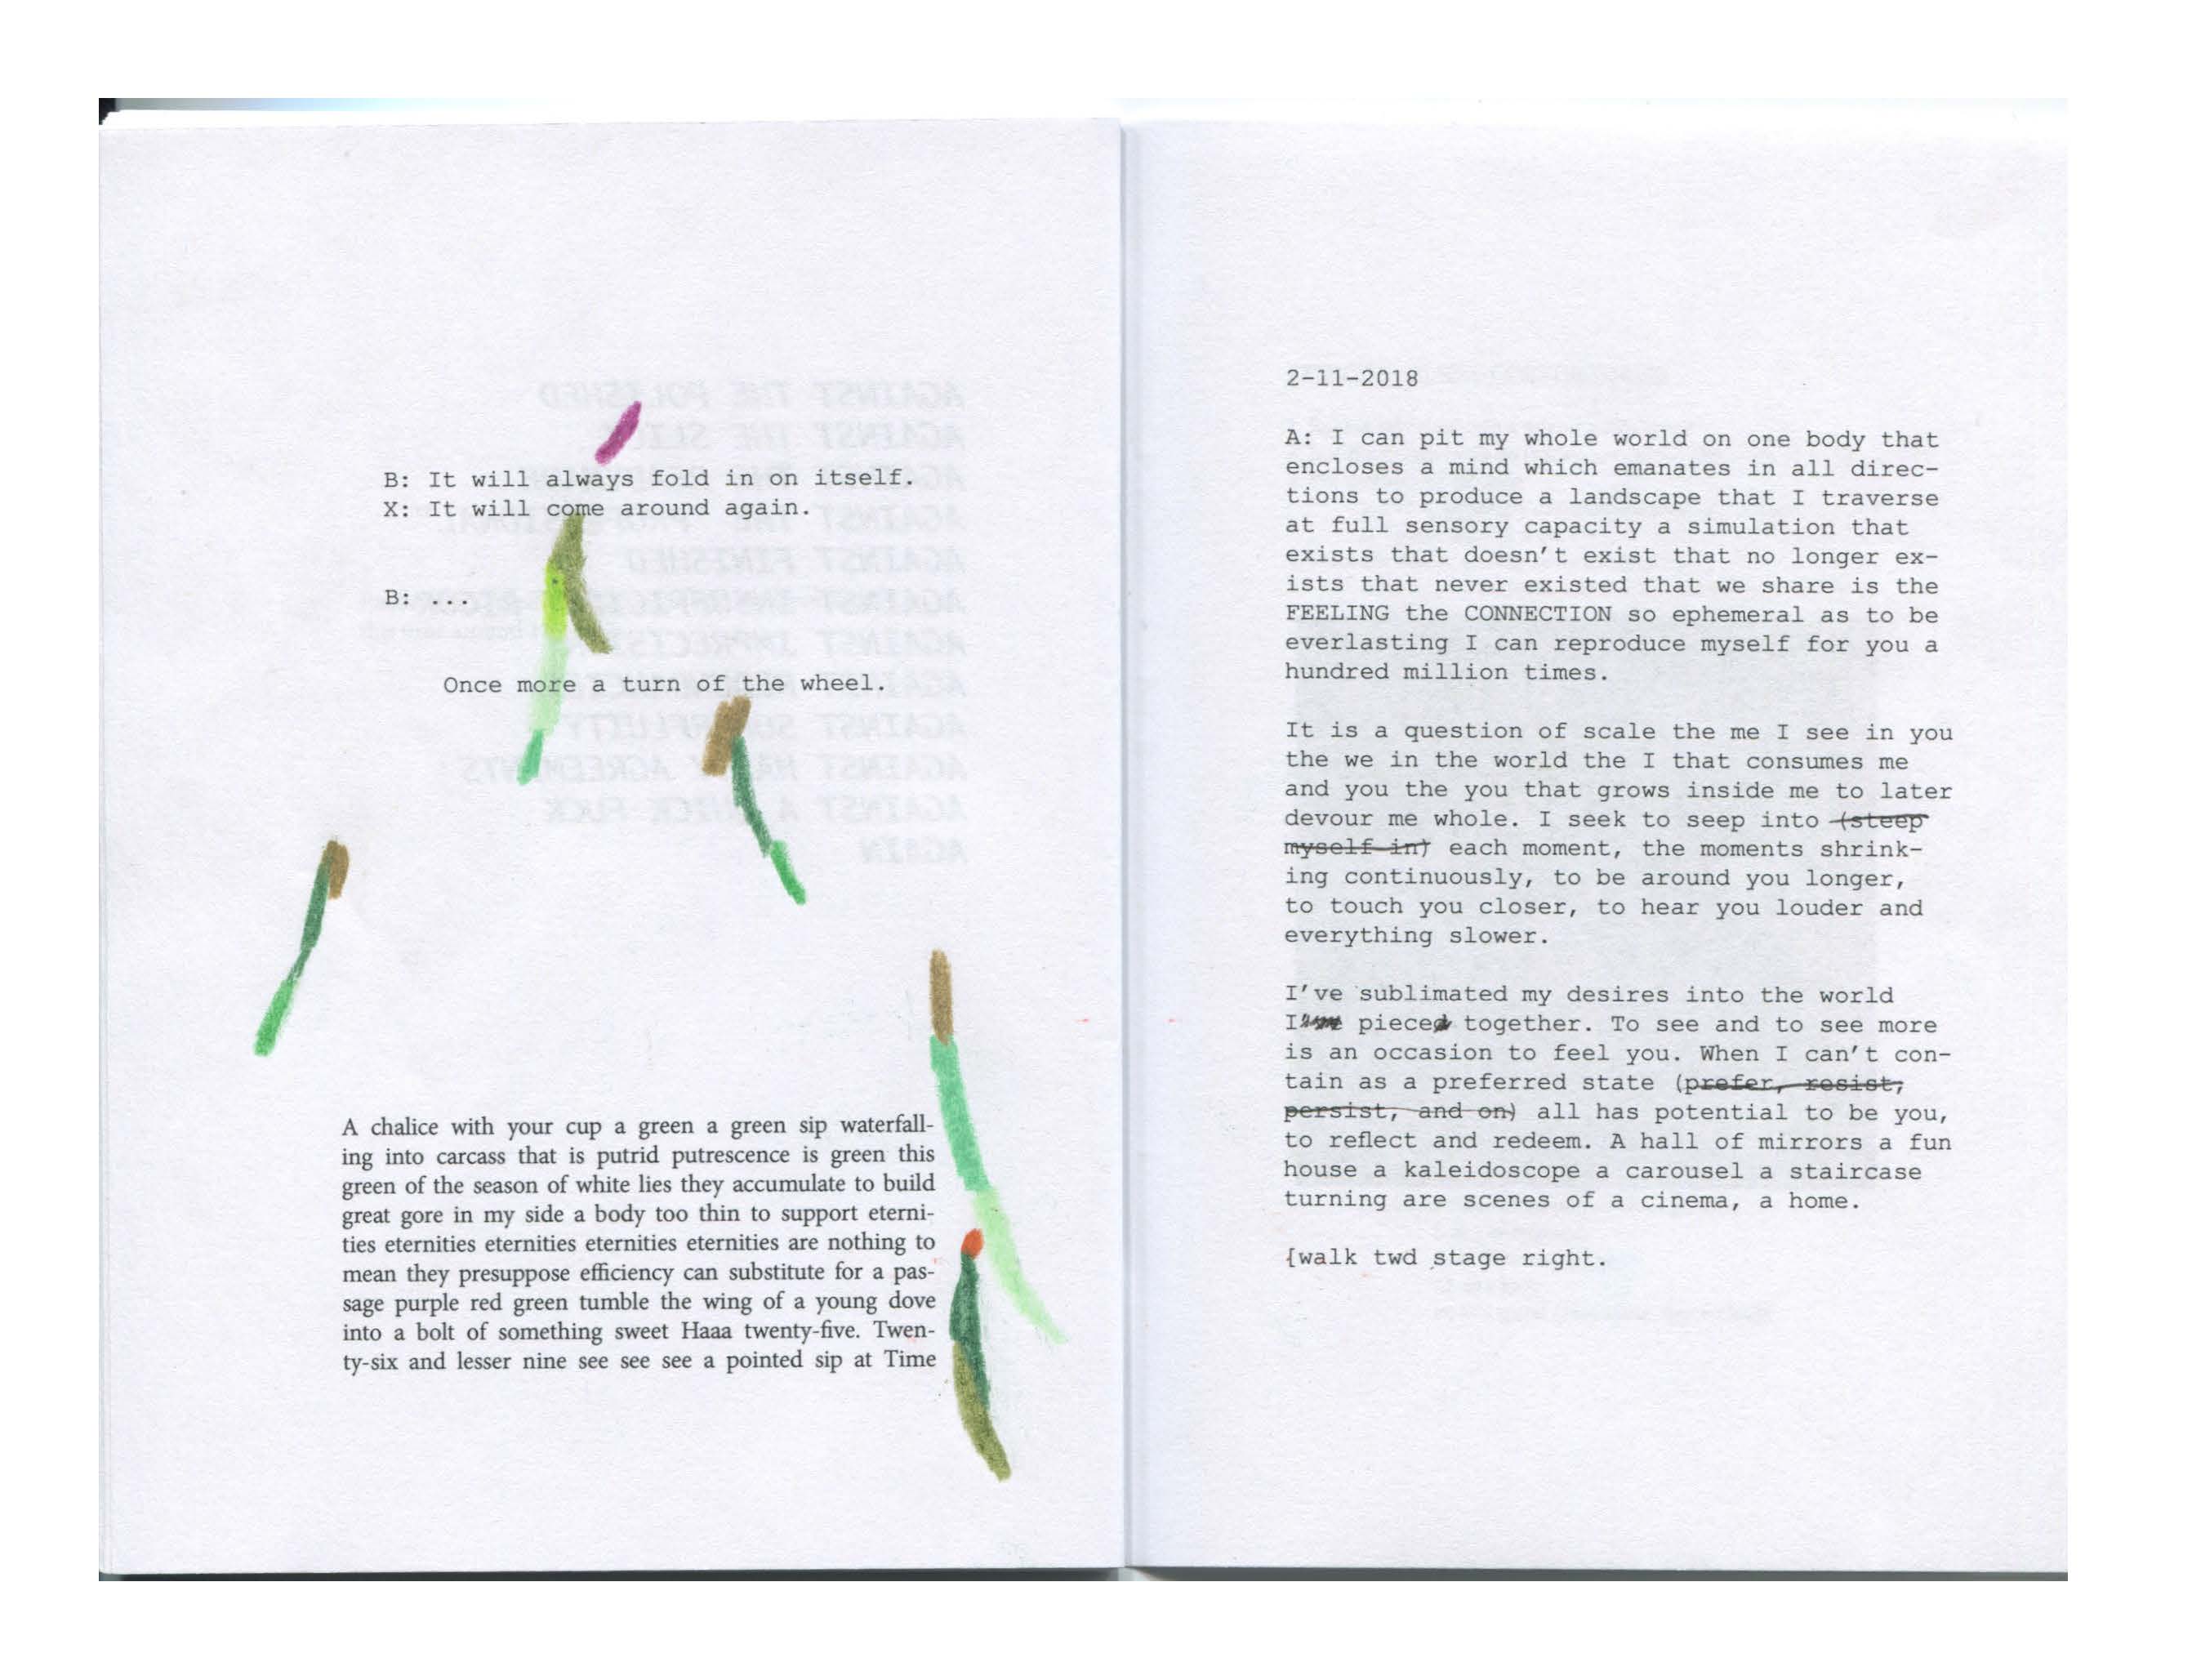 B: It will always fold in on itself.
X: It will come around again.
B: ...
Once more a turn of the wheel.
A chalice with your cup a green a green sip waterfall-
ing into carcass that is putrid putrescence is green this
green of the season of white lies they accumulate to build
great gore in my side a body too thin to support eterni-
ties eternities eternities eternities eternities are nothing to
mean they presuppose efficiency can substitute for a pas-
sage purple red green tumble the wing of a young dove
into a bolt of something sweet Haaa twenty-five. Twen-
ty-six and lesser nine see see see a pointed sip at Time
2-11-2018
A: I can pit my whole world on one body that
encloses a mind which emanates in all direc-
tions to produce a landscape that I traverse
at full sensory capacity a simulation that
exists that doesn't exist that no longer ex-
ists that never existed that we share is the
FEELING the CONNECTION so ephemeral as to be
everlasting I can reproduce myself for you a
hundred million times.
It is a question of scale the me I see in you
the we in the world the I that consumes me
and you the you that grows inside me to later
devour me whole. I seek to seep into (steep
myself in) each moment, the moments shrink-
ing continuously, to be around you longer,
to touch you closer, to hear you louder and
everything slower.
I've sublimated my desires into the world
I pieced together. To see and to see more
is an occasion to feel you. When I can't con-
tain as a preferred state (prefer, resist,
persist, and on) all has potential to be you,
to reflect and redeem. A hall of mirrors a fun
house a kaleidoscope a carousel a staircase
turning are scenes of a cinema, a home.
{walk twd stage right.